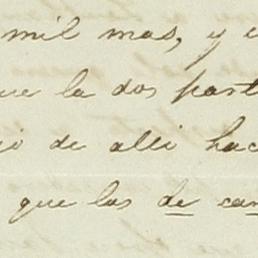 mil mas, y
que la dos part
jo de alli hac
que las de can